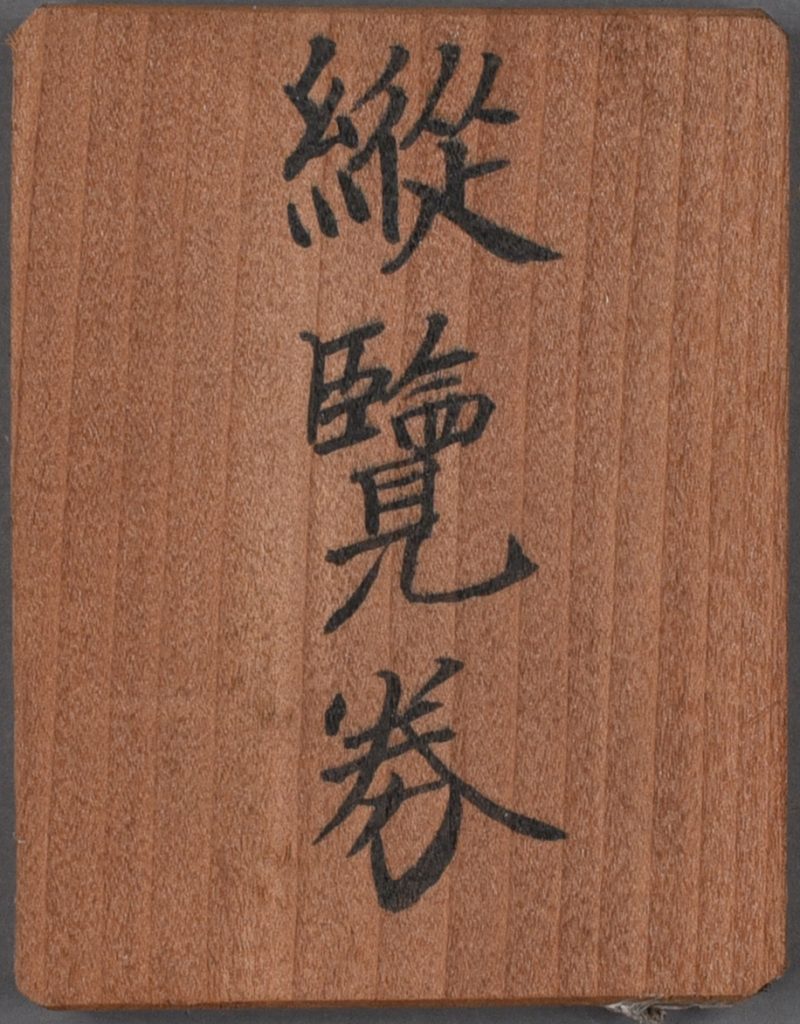 縱覽券